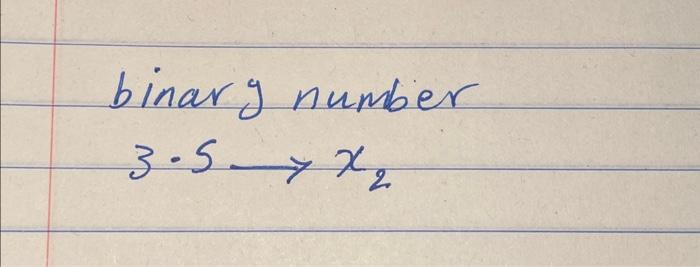 binary number
3.5 → x₂